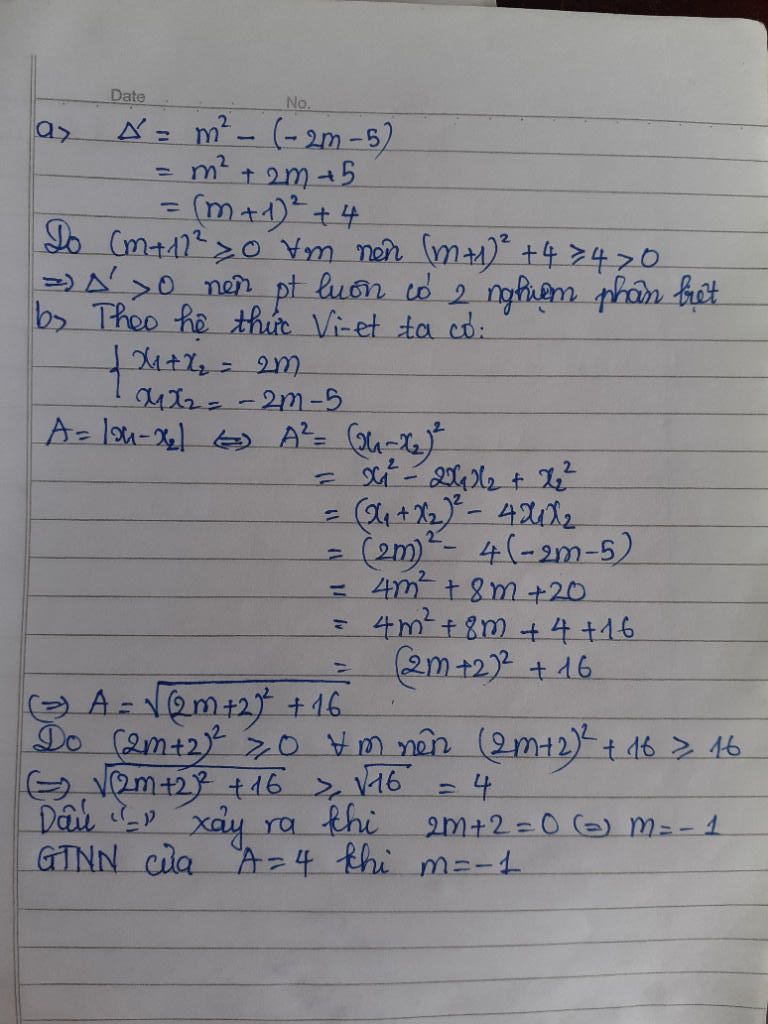 Date No.
a> Δ' = m² - (-2m-5)
= m² + 2m + 5
= (m+1)² + 4
Do (m+1)² ≥ 0 ∀m nên (m+1)² + 4 ≥ 4 > 0
=> Δ' > 0 nên pt luôn có 2 nghiệm phân biệt
b> Theo hệ thức Vi-et ta có:
{ x₁+x₂ = 2m
x₁x₂ = -2m-5
A = |x₁-x₂| <=> A² = (x₁-x₂)²
= x₁² - 2x₁x₂ + x₂²
= (x₁+x₂)² - 4x₁x₂
= (2m)² - 4(-2m-5)
= 4m² + 8m + 20
= 4m² + 8m + 4 + 16
= (2m+2)² + 16
(=> A = √((2m+2)² + 16)
Do (2m+2)² ≥ 0 ∀m nên (2m+2)² + 16 ≥ 16
(=> √((2m+2)² + 16) ≥ √16 = 4
Dấu "=" xảy ra khi 2m+2 = 0 (=) m = -1
GTNN của A = 4 khi m = -1